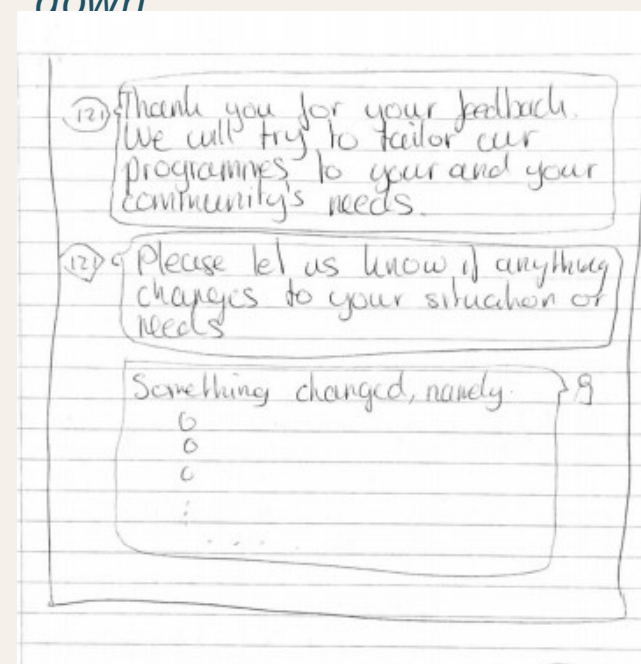 down
121
Thank you for your feedback.
We will try to tailor our
programmes to your and your
community's needs.
121
Please let us know if anything
changes to your situation or
needs
Something changed, namely.